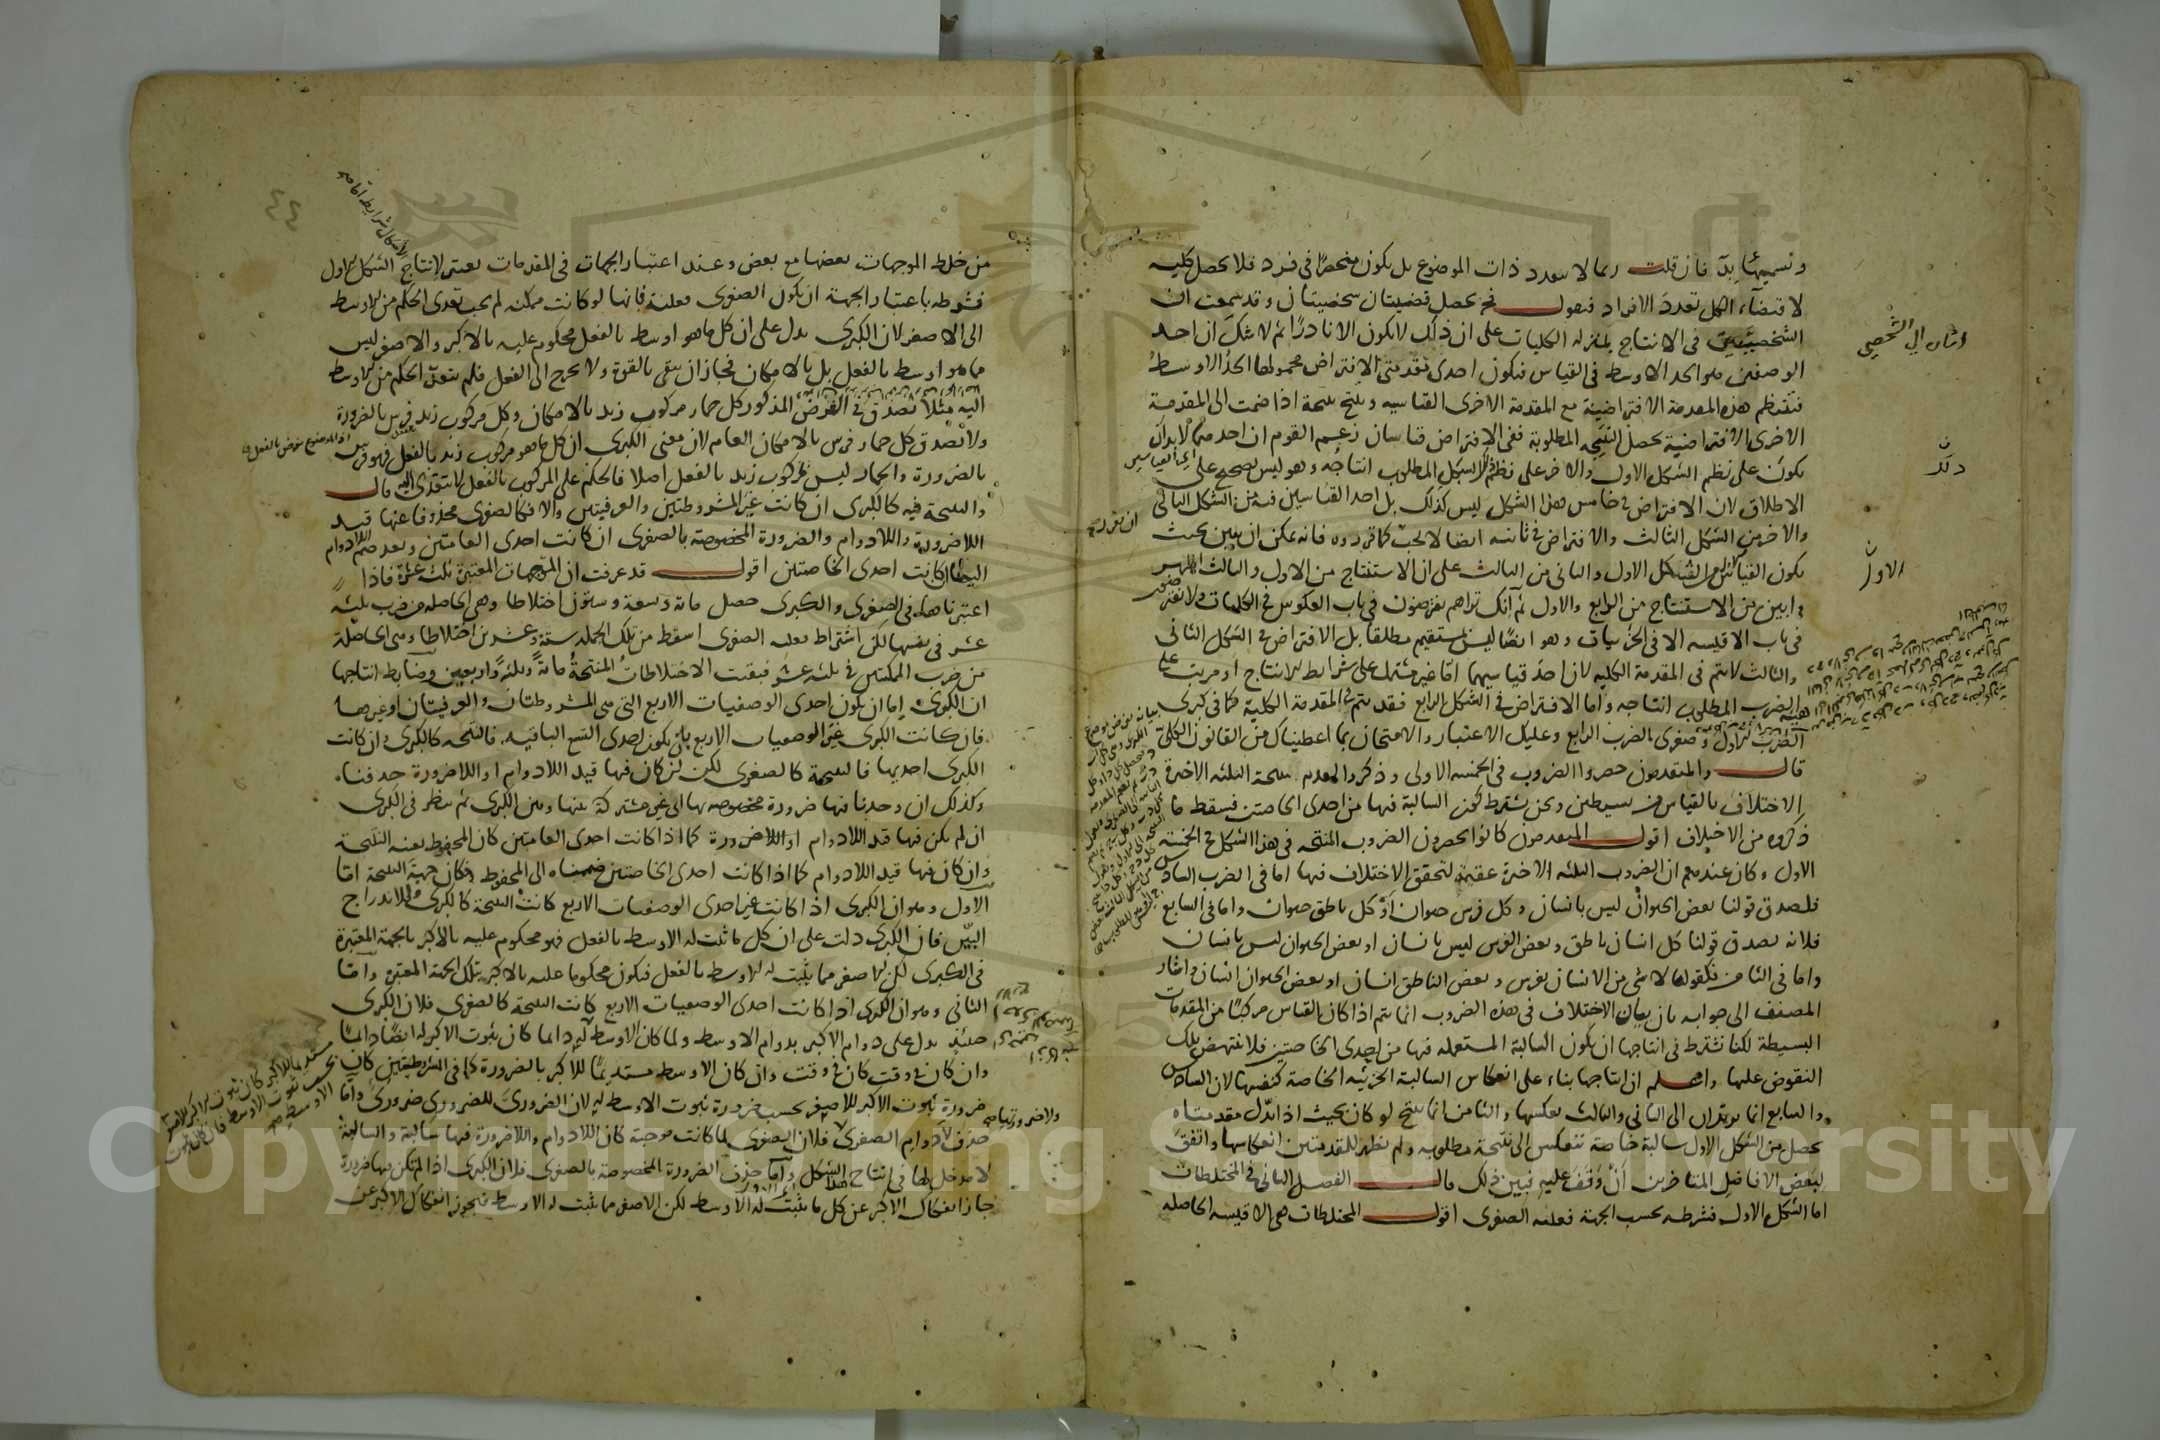 ونسميها بد فان قلت ربما لا يتعدد ذات الموضوع بل يكون منحصرا في فرد فلا يحصل كلية
لاقتضاء الكل تعدد الافراد فنقول نحصل قضيتان شخصيتان وقد سمعت ان
الشخصيتين في الانتاج بمنزلة الكليات على ان ذلك لا يكون الا نادرا ثم لا شك ان احد
الوصفين هو الحد الاوسط في القياس فيكون احدى مقدمتي الافتراض محمولها الحد الاوسط
فينتظم هذه المقدمة الافتراضية مع المقدمة الاخرى القياسية وينتج نتيجة اذا ضمت الى المقدمة
الاخرى الافتراضية يحصل النتيجة المطلوبة ففي الافتراض قياسان زعم القوم ان احدهما لا بد ان
يكون على نظم الشكل الاول والاخر على نظم الشكل المطلوب انتاجه وهو ليس بصحيح على
الاطلاق لان الافتراض في خامس هذا الشكل ليس كذلك بل احد القياسين فيه من الشكل الثاني
والاخر من الشكل الثالث والافتراض في ثانيه ايضا لا يجب كما قرروه فانه يمكن ان يبين بحيث
يكون القياس الاول الشكل الاول والثاني من الثالث على ان الاستنتاج من الاول والثالث اظهر
وابين من الاستنتاج من الرابع والاول ثم انك تراهم يفرضون في باب العكوس في الكليات ولا يفترضون
في باب الاقيسة الا في الجزئيات وهو ايضا ليس بمستقيم مطلقا بل الافتراض في الشكل الثاني
والثالث لا يتم في المقدمة الكلية لان احد قياسيهما اما غير مشتمل على شرايط الانتاج او مرتب على
هيئة الضرب المطلوب انتاجه واما الافتراض في الشكل الرابع فقد يتم في المقدمة الكلية كما في كبرى
الضرب الاول وصغرى الضرب الرابع وعليك الاعتبار والامتحان بما اعطيناك من القانون الكلي
قال والمتقدمون حصروا الضروب في الخمسة الاولى وذكروا لعدم نتيجة الثلثة الاخيرة
الاختلاف بالقياس من بسيطين ونحن نشترط كون السالبة فيها من احدى الخاصتين فسقط ما
ذكروه من الاختلاف اقول المتقدمون كانوا يحصرون الضروب المنتجة في هذا الشكل في الخمسة
الاول وكان عندهم ان الضروب الثلثة الاخيرة عقيمة لتحقق الاختلاف فيها اما في الضرب السادس
فلصدق قولنا بعض الحيوان ليس بانسان وكل فرس حيوان او كل ناطق حيوان واما في السابع
فلانه يصدق قولنا كل انسان ناطق وبعض الفرس ليس بانسان او بعض الحيوان ليس بانسان
واما في الثامن فكقولنا لا شيء من الانسان بفرس وبعض الناطق انسان او بعض الحيوان انسان واشار
المصنف الى جوابه بان بيان الاختلاف في هذه الضروب انما يتم اذا كان القياس مركبا من المقدمات
البسيطة لكنا نشترط في انتاجها ان يكون السالبة المستعملة فيها من احدى الخاصتين فلا ينتهض تلك
النقوض عليها واعلم ان انتاجها بناء على انعكاس السالبة الجزئية الخاصة كنفسها لان السادس
والسابع انما يرتدان الى الثاني والثالث بعكسها والثامن انما ينتج لو كان بحيث اذا بدل مقدمتاه
يحصل من الشكل الاول سالبة خاصة تنعكس الى نتيجة مطلوبه ولم يظهر للمتقدمين انعكاسها واتفق
لبعض الافاضل المتاخرين ان وقف عليه فبين ذلك قال الفصل الثاني في المختلطات
اما الشكل الاول فشرطه بحسب الجهة فعلية الصغرى اقول المختلطات هي الاقيسة الحاصلة
دلك
الاول
٤٤
من خلط الموجهات بعضها مع بعض وعند اعتبار الجهات في المقدمات يعتبر لانتاج الشكل الاول
فشرطه باعتبار الجهة ان يكون الصغرى فعلية فانها لو كانت ممكنة لم يجب تعدى الحكم من الاوسط
الى الاصغر لان الكبرى يدل على ان كل ما هو اوسط بالفعل محكوم عليه بالاكبر والاصغر ليس
مما هو اوسط بالفعل بل بالامكان فجاز ان يبقى بالقوة ولا يخرج الى الفعل فلم يتعد الحكم من الاوسط
اليه مثلا يصدق في الفرض المذكور كل حمار مركوب زيد بالامكان وكل مركوب زيد فرس بالضرورة
ولا يصدق كل حمار فرس بالامكان العام لان معنى الكبرى ان كل ما هو مركوب زيد بالفعل فهو فرس
بالضرورة والحمار ليس مركوب زيد بالفعل اصلا فالحكم على المركوب بالفعل لا يتعدى اليه قال
والنتيجة فيه كالكبرى ان كانت غير المشروطتين والعرفيتين والا فكالصغرى محذوفا عنها قيد
اللاضرورة واللادوام والضرورة المخصوصة بالصغرى ان كانت احدى العامتين وبعد ضم اللادوام
اليها ان كانت احدى الخاصتين اقول قد عرفت ان الموجهات المعتبرة ثلث عشرة فاذا
اعتبرناها في الصغرى والكبرى حصل مائة وتسعة وستون اختلاطا وهي الحاصلة من ضرب ثلثة
عشر في نفسها لكن اشتراط فعلية الصغرى اسقط من تلك الجملة ستة وعشرين اختلاطا وهي الحاصلة
من ضرب الممكنتين في ثلثة عشر فبقيت الاختلاطات المنتجة مائة وثلثة واربعين وضابط انتاجها
ان الكبرى اما ان يكون احدى الوصفيات الاربع التي هي المشروطتان والعرفيتان او غيرها
فان كانت الكبرى غير الوصفيات الاربع بان يكون احدى التسع الباقية فالنتيجة كالكبرى وان كانت
الكبرى احديها فالنتيجة كالصغرى لكن ان كان فيها قيد اللادوام او اللاضرورة حذفناه
وكذلك ان وجدنا فيها ضرورة مخصوصة بها اى غير مشتركة بينها وبين الكبرى ثم ننظر في الكبرى
ان لم يكن فيها قيد اللادوام او اللاضرورة كما اذا كانت احدى العامتين كان المحفوظ بعينه النتيجة
وان كان فيها قيد اللادوام كما اذا كانت احدى الخاصتين ضممناه الى المحفوظ فكان جهة النتيجة اما
الاول وهو ان الكبرى اذا كانت غير احدى الوصفيات الاربع كانت النتيجة كالكبرى فللاندراج
البين فان الكبرى دلت على ان كل ما ثبت له الاوسط بالفعل فهو محكوم عليه بالاكبر بالجهة المعتبرة
في الكبرى لكن الاصغر مما يثبت له الاوسط بالفعل فيكون محكوما عليه بالاكبر بتلك الجهة المعتبرة واما
الثاني وهو ان الكبرى اذا كانت احدى الوصفيات الاربع كانت النتيجة كالصغرى فلان الكبرى
حينئذ يدل على دوام الاكبر بدوام الاوسط ولما كان الاوسط له دائما كان ثبوت الاكبر له ايضا دائما
وان كان في وقت كان في وقت وان كان الاوسط مستديما للاكبر بالضرورة كما في المشروطتين كان
ضرورة ثبوت الاكبر للاصغر بحسب ضرورة ثبوت الاوسط له لان الضروري للضروري ضروري واما
حذف لادوام الصغرى فلان الصغرى لما كانت موجبة كان اللادوام واللاضرورة فيها سالبة والسالبة
لا مدخل لها في انتاج هذا الشكل واما حذف الضرورة المخصوصة بالصغرى فلان الكبرى اذا لم تكن فيها ضرورة
جاز انفكاك الاكبر عن كل ما يثبت له الاوسط لكن الاصغر مما يثبت له الاوسط فيجوز انفكاك الاكبر عن
Copyright © King Saud University